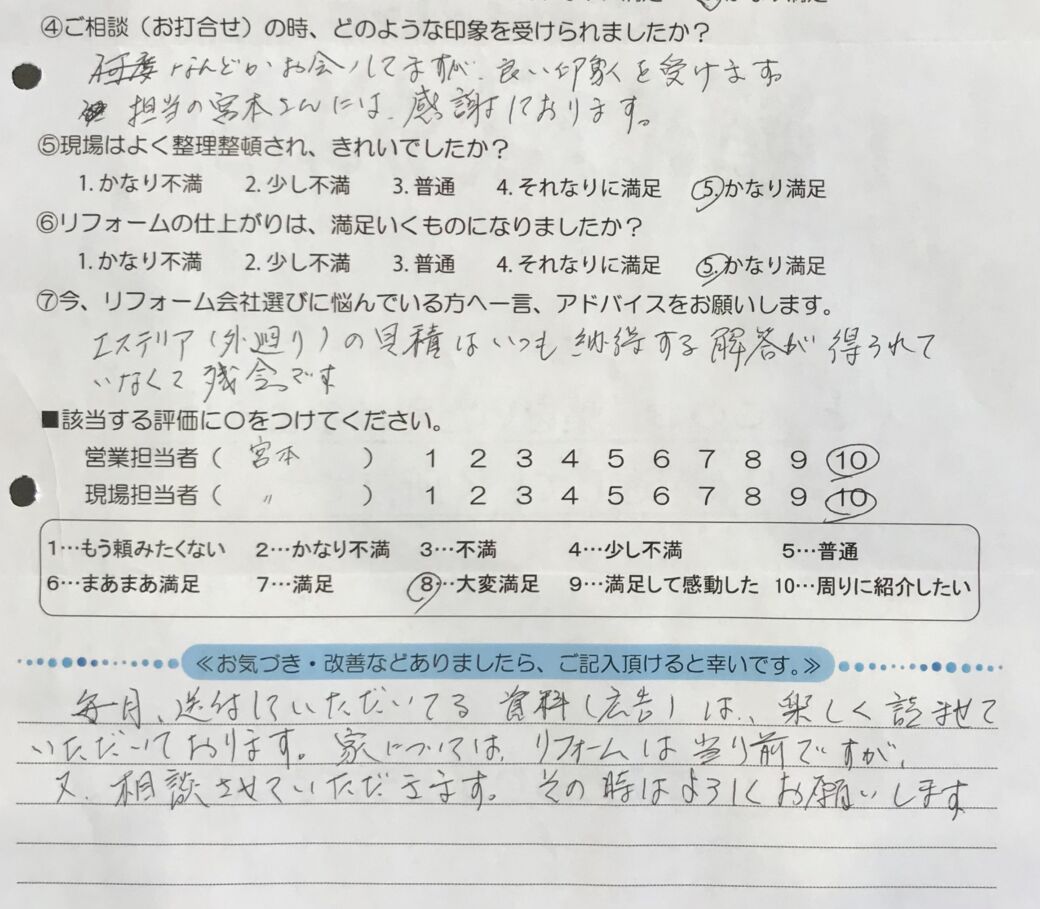 ④ご相談（お打合せ）の時、どのような印象を受けられましたか？
なんどかお会いしてますが、良い印象を受けます。
担当の宮本さんには、感謝しております。
⑤現場はよく整理整頓され、きれいでしたか？
1.かなり不満 2.少し不満 3.普通 4.それなりに満足 5.かなり満足
⑥リフォームの仕上がりは、満足いくものになりましたか？
1.かなり不満 2.少し不満 3.普通 4.それなりに満足 5.かなり満足
⑦今、リフォーム会社選びに悩んでいる方へ一言、アドバイスをお願いします。
エステリア（外廻り）の見積はいつも納得する解答が得られて
いなくて残念です
■該当する評価に〇をつけてください。
営業担当者（ 宮本 ） 1 2 3 4 5 6 7 8 9 10
現場担当者（ 〃 ） 1 2 3 4 5 6 7 8 9 10
1…もう頼みたくない 2…かなり不満 3…不満 4…少し不満 5…普通
6…まあまあ満足 7…満足 8…大変満足 9…満足して感動した 10…周りに紹介したい
≪お気づき・改善などありましたら、ご記入頂けると幸いです。≫
毎月、送付していただいてる資料（広告）は、楽しく読ませて
いただいております。家については、リフォームは当り前ですが、
又、相談させていただきます。その時はよろしくお願いします